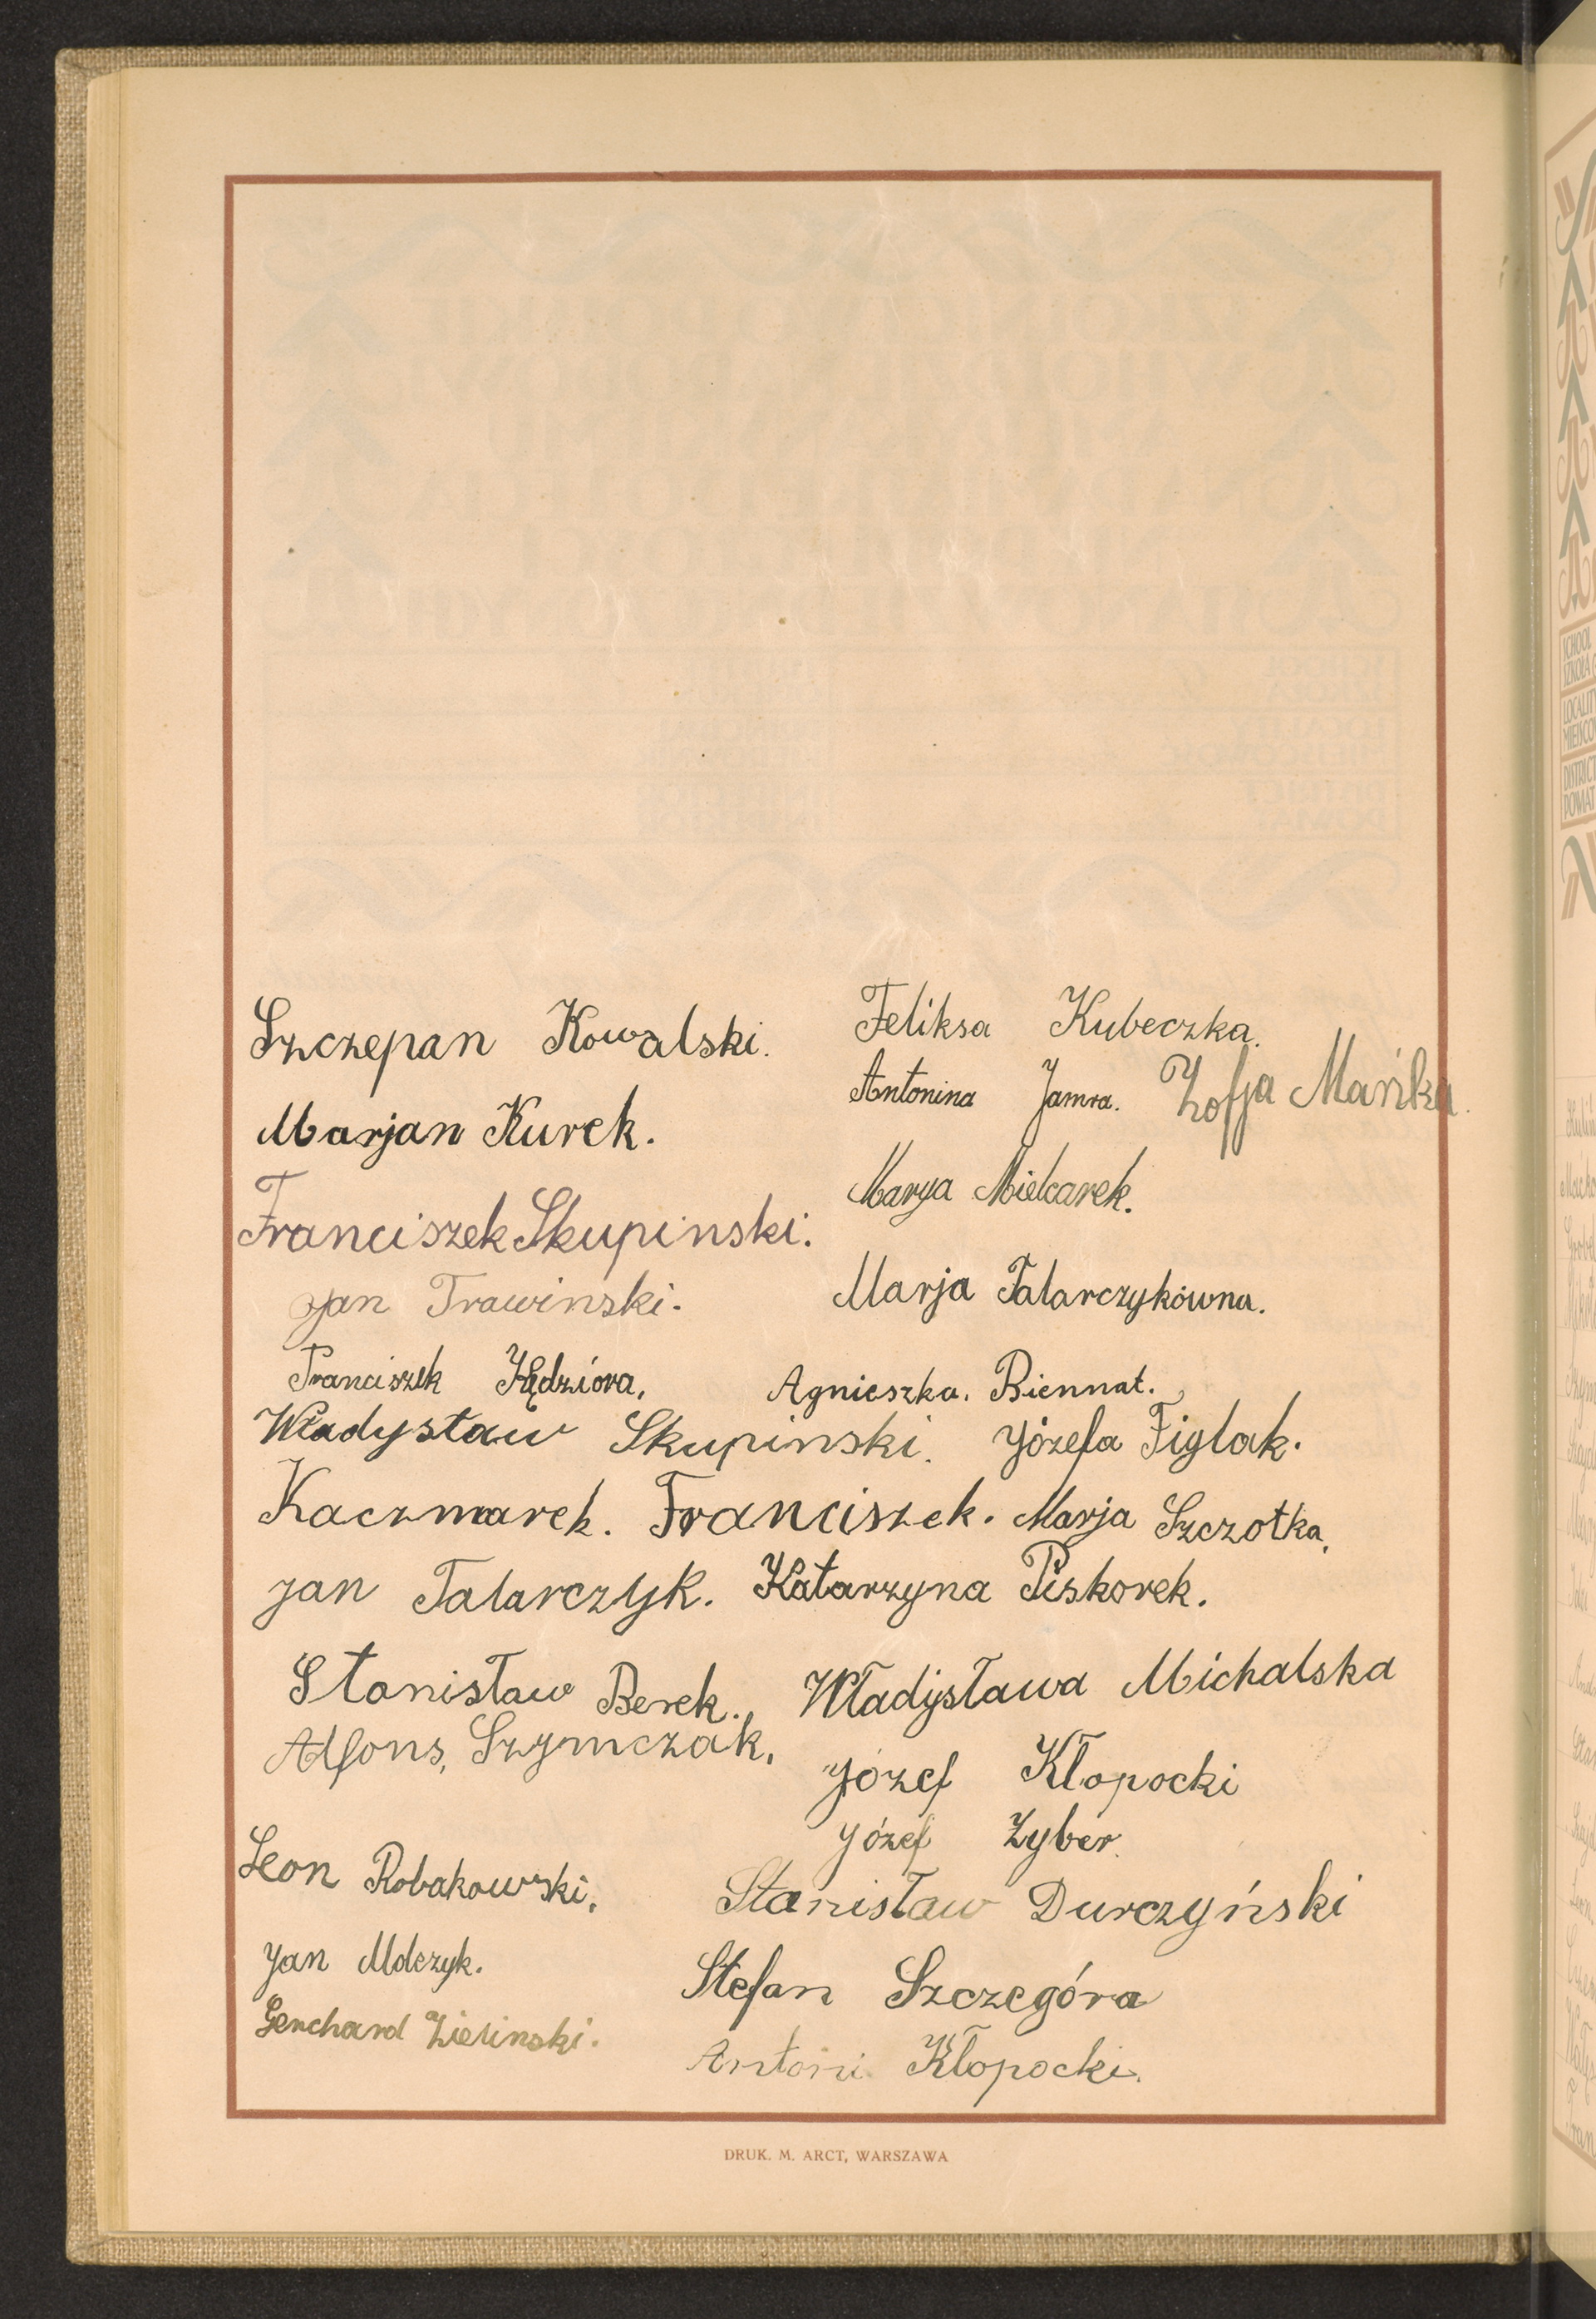 Szczepan Kowalski. Feliksa Kubeczka.
Antonina Jamra. Zofja Mańka.
Marjan Kurek.
Marya Mielcarek.
Franciszek Skupinski.
Jan Trawinski. Marja Talarczykówna.
Franciszek Kędziora, Agnieszka. Biennat.
Władysław Skupinski. Józefa Figlak.
Kaczmarek. Franciszek. Marja Szczotka,
Jan Talarczyk. Katarzyna Piskorek.
Stanisław Berek. Władysława Michalska
Alfons, Szymczak,
Józef Kłopocki
Józef Zyber.
Leon Robakowski,
Stanisław Durczyński
Jan
Stefan Szczegóra
Gerchard Zielinski.
Antoni Kłopocki.
DRUK. M. ARCT, WARSZAWA
SCHOOL
SZKOŁA
LOCALITY
DISTRICT